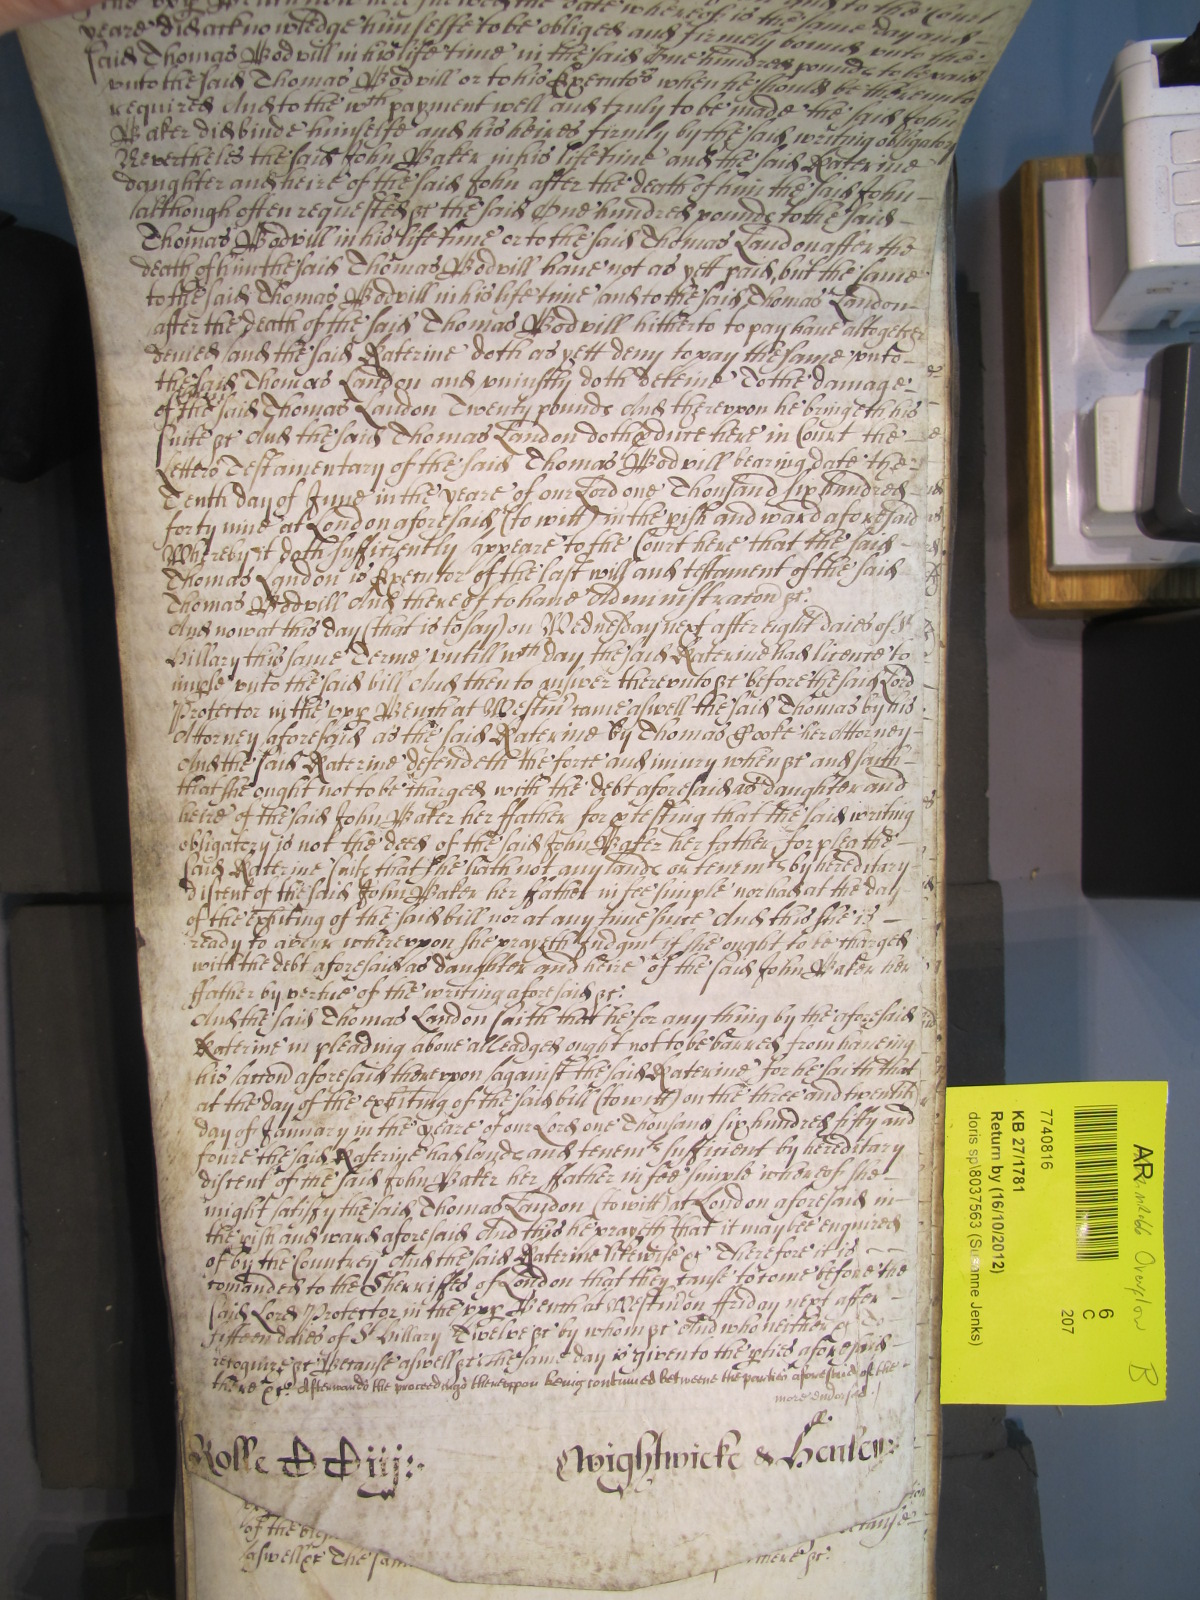 the upp Bench now here sheweth the date whereof is the same day and
yeare did acknowledge himselfe to be obliged and firmely bound unto the
said Thomas Bodvill in his life time in the said One hundred pounds to be paid
unto the said Thomas Bodvill or to his Executors when he should be thereunto
required And to the wch payment well and truly to be made the said John
Baker did binde himselfe and his heires firmly by the said writing obligatory
Nevertheles the said John Baker in his life time and the said Katerine
daughter and heire of the said John after the death of him the said John
(although often requested &c) the said One hundred pounds to the said
Thomas Bodvill in his life time or to the said Thomas Landon after the
death of him the said Thomas Bodvill have not as yett paid but the same
to the said Thomas Bodvill in his life time and to the said Thomas Landon
after the death of the said Thomas Bodvill hitherto to pay have altogeter
denied and the said Katerine doth as yett deny to pay the same unto
the said Thomas Landon and uniustly doth deteine To the damage
of the said Thomas Landon Twenty pounds And thereupon he bringeth his
suite &c And the said Thomas Landon doth pduce here in Court the
Letters Testamentary of the said Thomas Bodvill bearing date the
Tenth day of June in the yeare of our Lord one Thousand six hundred
forty nine at London aforesaid (to witt) in the pish and ward aforesaid
Whereby it doth sufficiently appeare to the Court here that the said
Thomas Landon is Executor of the last will and testament of the said
Thomas Bodvill And thereof to have Administraton &c.
And now at this day (that is to say) on Wednesday next after eight daies of St
Hillary this same Terme untill wch day the said Katerine had licence to
imple unto the said bill And then to answer thereunto &c before the said Lord
Protector in the upp Bench at Westm came aswell the said Thomas by his
Attorney aforesaid as the said Katerine by Thomas Cooke her Attorney
And the said Katerine defendeth the force and iniury when &c and saith
that she ought not to be charged with the debt aforesaid as daughter and
heire of the said John Baker her ffather for ptesting that the said writing
obligatory is not the deed of the said John Baker her father, for plea the
said Katerine saith that she hath not any lands or tenemts by hereditary
discent of the said John Baker her ffather in fee simple nor had at the day
of the exhiting of the said bill nor at any time since And this she is
ready to averr whereupon she prayeth Judgmt if she ought to be charged
with the debt aforesaid as daughter and heire of the said John Baker her
ffather by vertue of the writing aforesaid &c.
And the said Thomas Landon saith that he for any thing by the aforesaid
Katerine in pleading above alleadged ought not to be barred from haveing
his accon aforesaid thereupon against the said Katerine for he saith that
at the day of the exhiting of the said bill (to witt) on the three and twentith
day of January in the yeare of our Lord one Thousand six hundred fifty and
foure the said Katerine had lands and tenemts sufficient by hereditary
discent of the said John Baker her ffather in fee simple whereof she
might satisfy the said Thomas Landon (to witt) at London aforesaid in
the pish and ward aforesaid And this he prayeth that it may bee enquired
of by the Countrey And the said Katerine likewise &c Therefore it is
comanded to the Sherriffes of London that they cause to come before the
said Lord Protector in the upp Bench at Westm on ffriday next after
fifteen daies of St Hillary Twelve &c by whom &c And who neither &c To
recognize &c Because aswell &c the same day is given to the pties aforesaid
there &c. Afterwards the proceedings thereupon being continued betweene the parties aforesaid of the
more endorsed
Rolle
Wightwicke & Henley
aswell &c The same
there &c.
7740816
KB 27/1781
Return by (16/10/2012)
doris sp\8037563 (Suzanne Jenks)
6
C
207
AR
Overflow
B